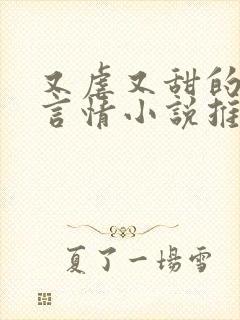 又虐又甜的
言情小說推
夏了一場雪